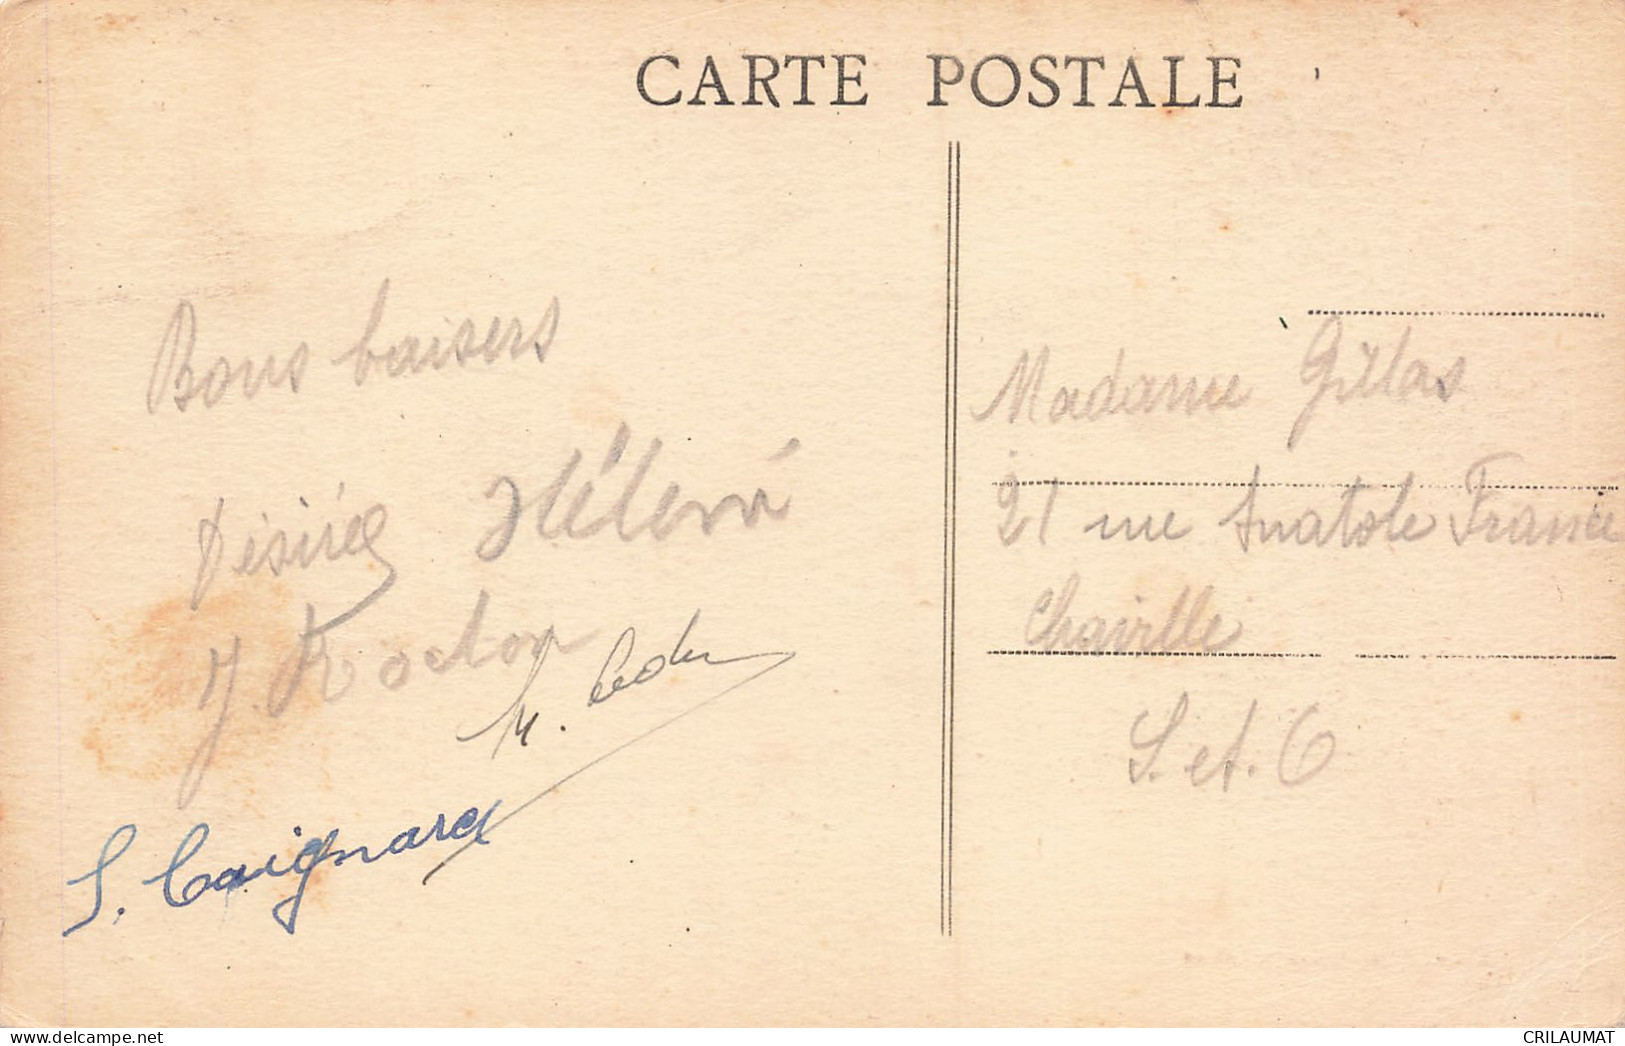 CARTE POSTALE
Bons baisers
Désirée
J.
S. Caignard
Madame Gillas
21 rue Anatole France
Chaville
S. et. O
www.delcampe.net
CRILAUMAT